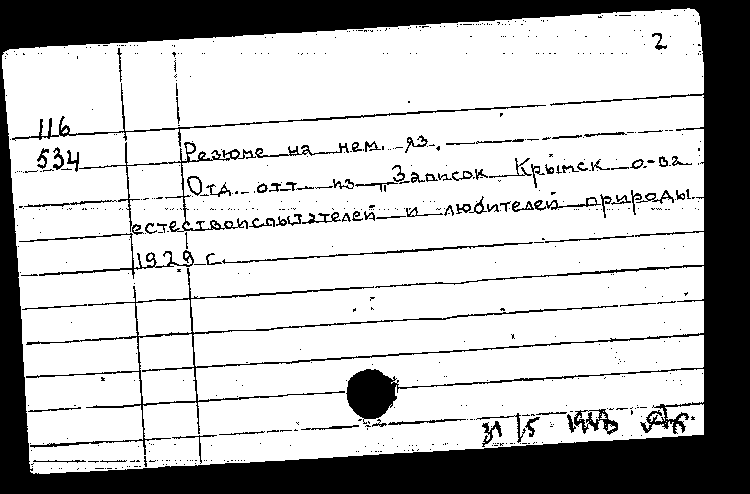 2
116
534
Резюме на нем. яз.
Отд. отт. из „Записок Крымск о-ва
естествоиспытателей и любителей природы
1929 г.
31/5